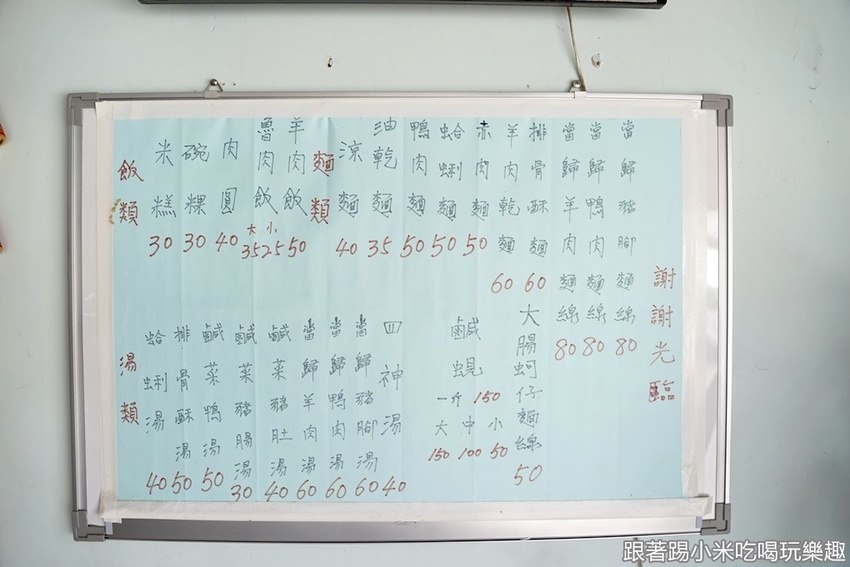 飯類
米糕 30
碗粿 30
肉圓 40
魯肉飯 大35 小25
羊肉飯 50
麵類
涼麵 40
油乾麵 35
鴨肉麵 50
蛤蜊麵 50
赤肉麵 50
羊肉乾麵 60
排骨酥麵 60
當歸羊肉麵線 80
當歸鴨肉麵線 80
當歸豬腳麵線 80
謝謝光臨
湯類
蛤蜊湯 40
排骨酥湯 50
鹹菜鴨湯 50
鹹菜豬腸湯 30
鹹菜豬肚湯 40
當歸羊肉湯 60
當歸鴨肉湯 60
當歸豬腳湯 60
四神湯 40
鹹蜆
一斤 150
大 150
中 100
小 50
大腸蚵仔麵線 50
跟著踢小米吃喝玩樂趣